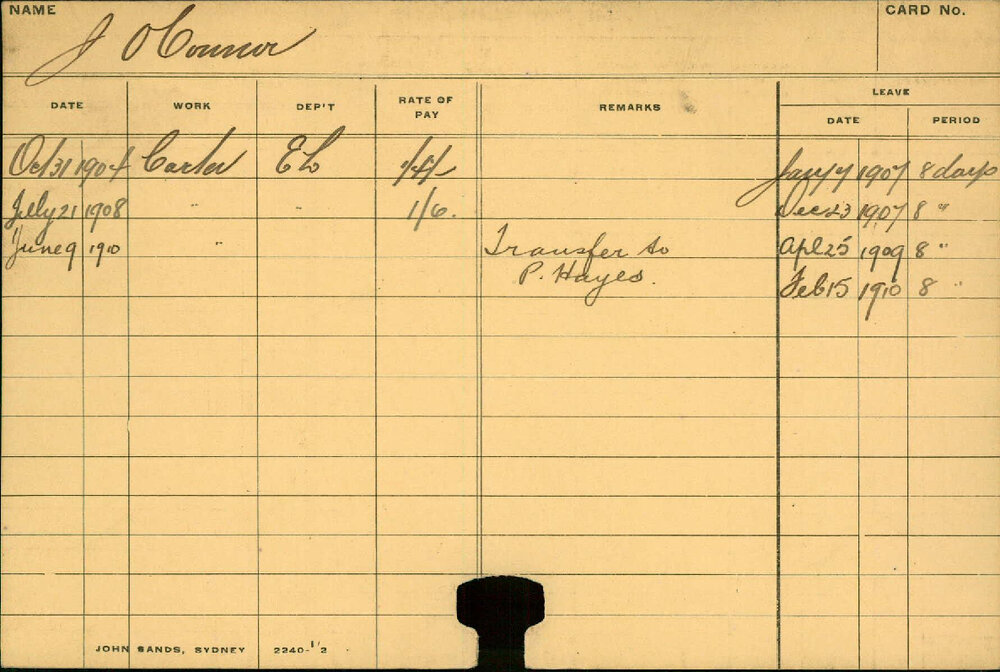 NAME J O'Connor CARD No.
LEAVE
DATE WORK DEP'T RATE OF PAY REMARKS DATE PERIOD
Oct 31 1904 Carter Jany 7 1907 8 days
July 21 1908 " " 1/6. Dec 23 1907 8 "
June 9 1910 " Transfer to Apl 25 1909 8 "
P. Hayes. Feb 15 1910 8 "
JOHN SANDS, SYDNEY 2240-1/2